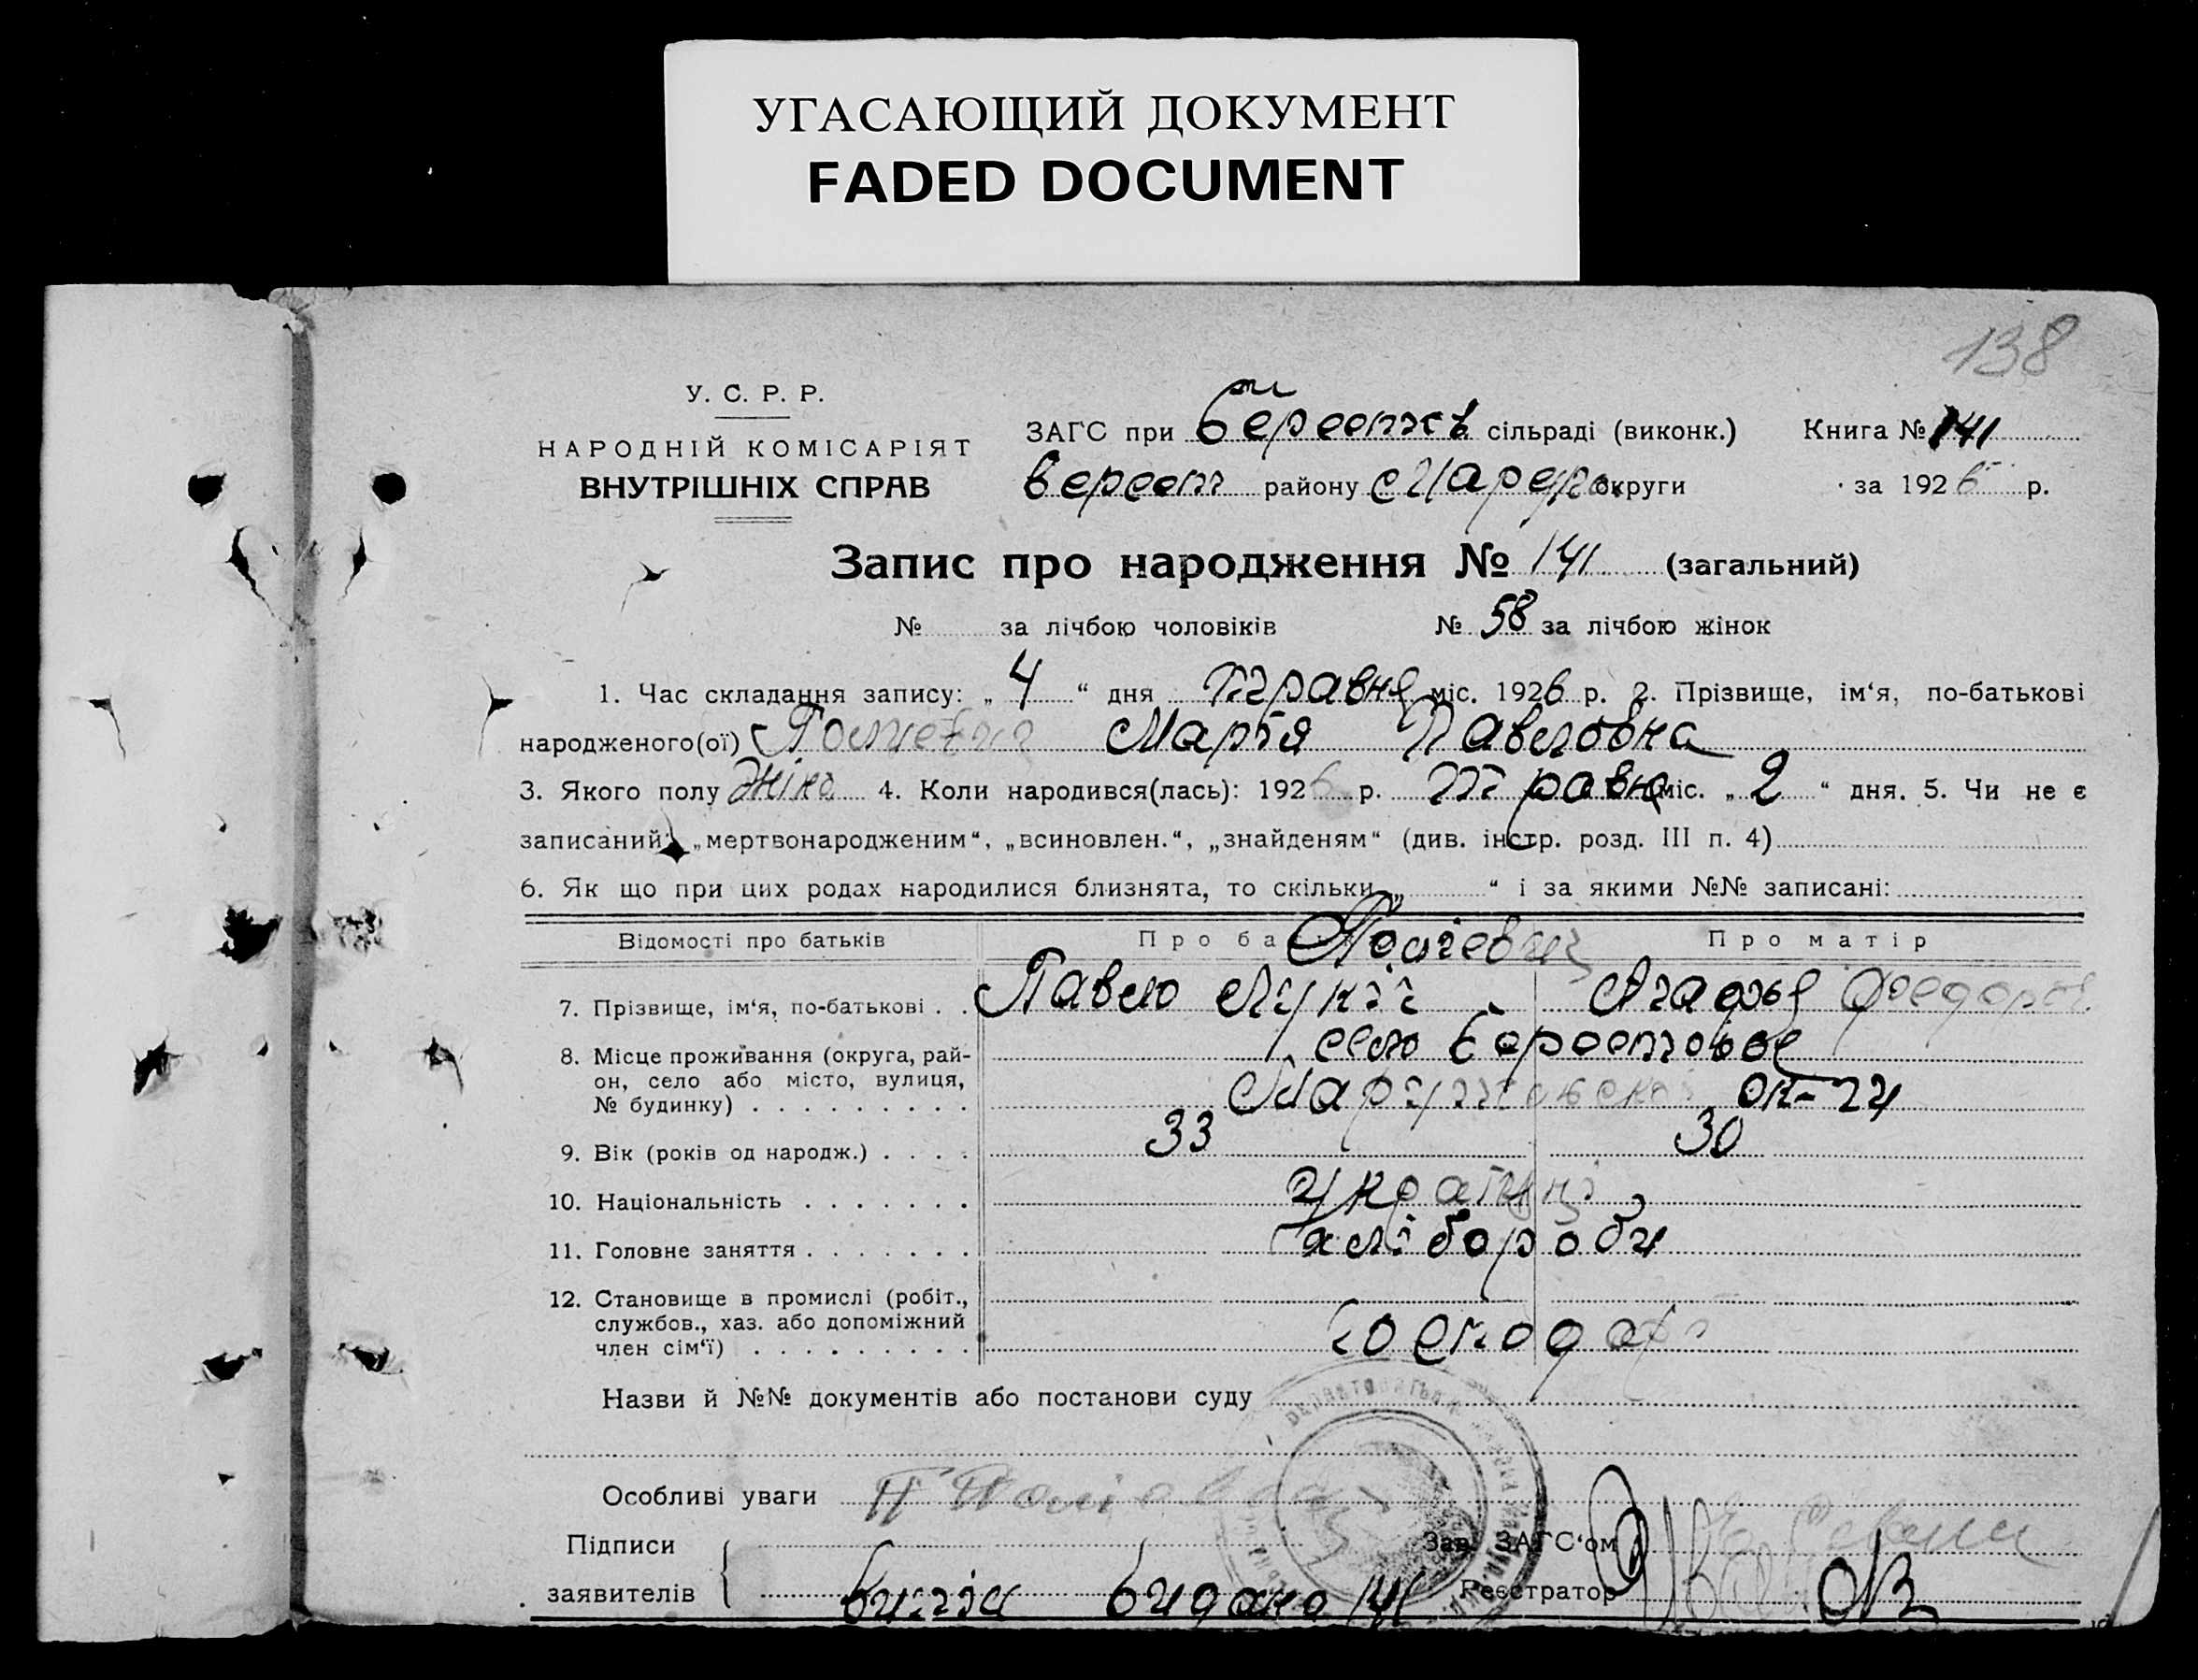 УГАСАЮЩИЙ ДОКУМЕНТ
FADED DOCUMENT
138
У. С. Р. Р.
НАРОДНІЙ КОМІСАРІЯТ
ВНУТРІШНІХ СПРАВ
ЗАГС при сільраді (виконк.) Книга № 141
району округи за 1926 р.
Запис про народження № 141 (загальний)
№ за лічбою чоловіків № 58 за лічбою жінок
1. Час складання запису: „ 4 “ дня травня міс. 1926 р. 2. Прізвище, ім‘я, по-батькові
народженого(ої) Марія Павловна
3. Якого полу жіно 4. Коли народився(лась): 1926 р. травня міс. „ 2 “ дня. 5. Чи не є
записаний: „мертвонародженим“, „всиновлен.“, „знайденям“ (див. інстр. розд. III п. 4)
6. Як що при цих родах народилися близнята, то скільки „ “ і за якими №№ записані:
Відомості про батьків Про ба Про матір
7. Прізвище, ім‘я, по-батькові . . Павло Агафья Федоров
8. Місце проживання (округа, рай- село Берестовое
он, село або місто, вулиця,
№ будинку) . . . . . . . . . ок-ги
9. Вік (років од народж.) . . . . 33 30
10. Національність . . . . . . . україні
11. Головне заняття . . . . . . . хлібороби
12. Становище в промислі (робіт.,
службов., хаз. або допоміжний господарі
член сім‘ї) . . . . . . . . .
Назви й №№ документів або постанови суду
Особливі уваги
Підписи Зав. ЗАГС‘ом
заявителів видано 141 Реєстратор